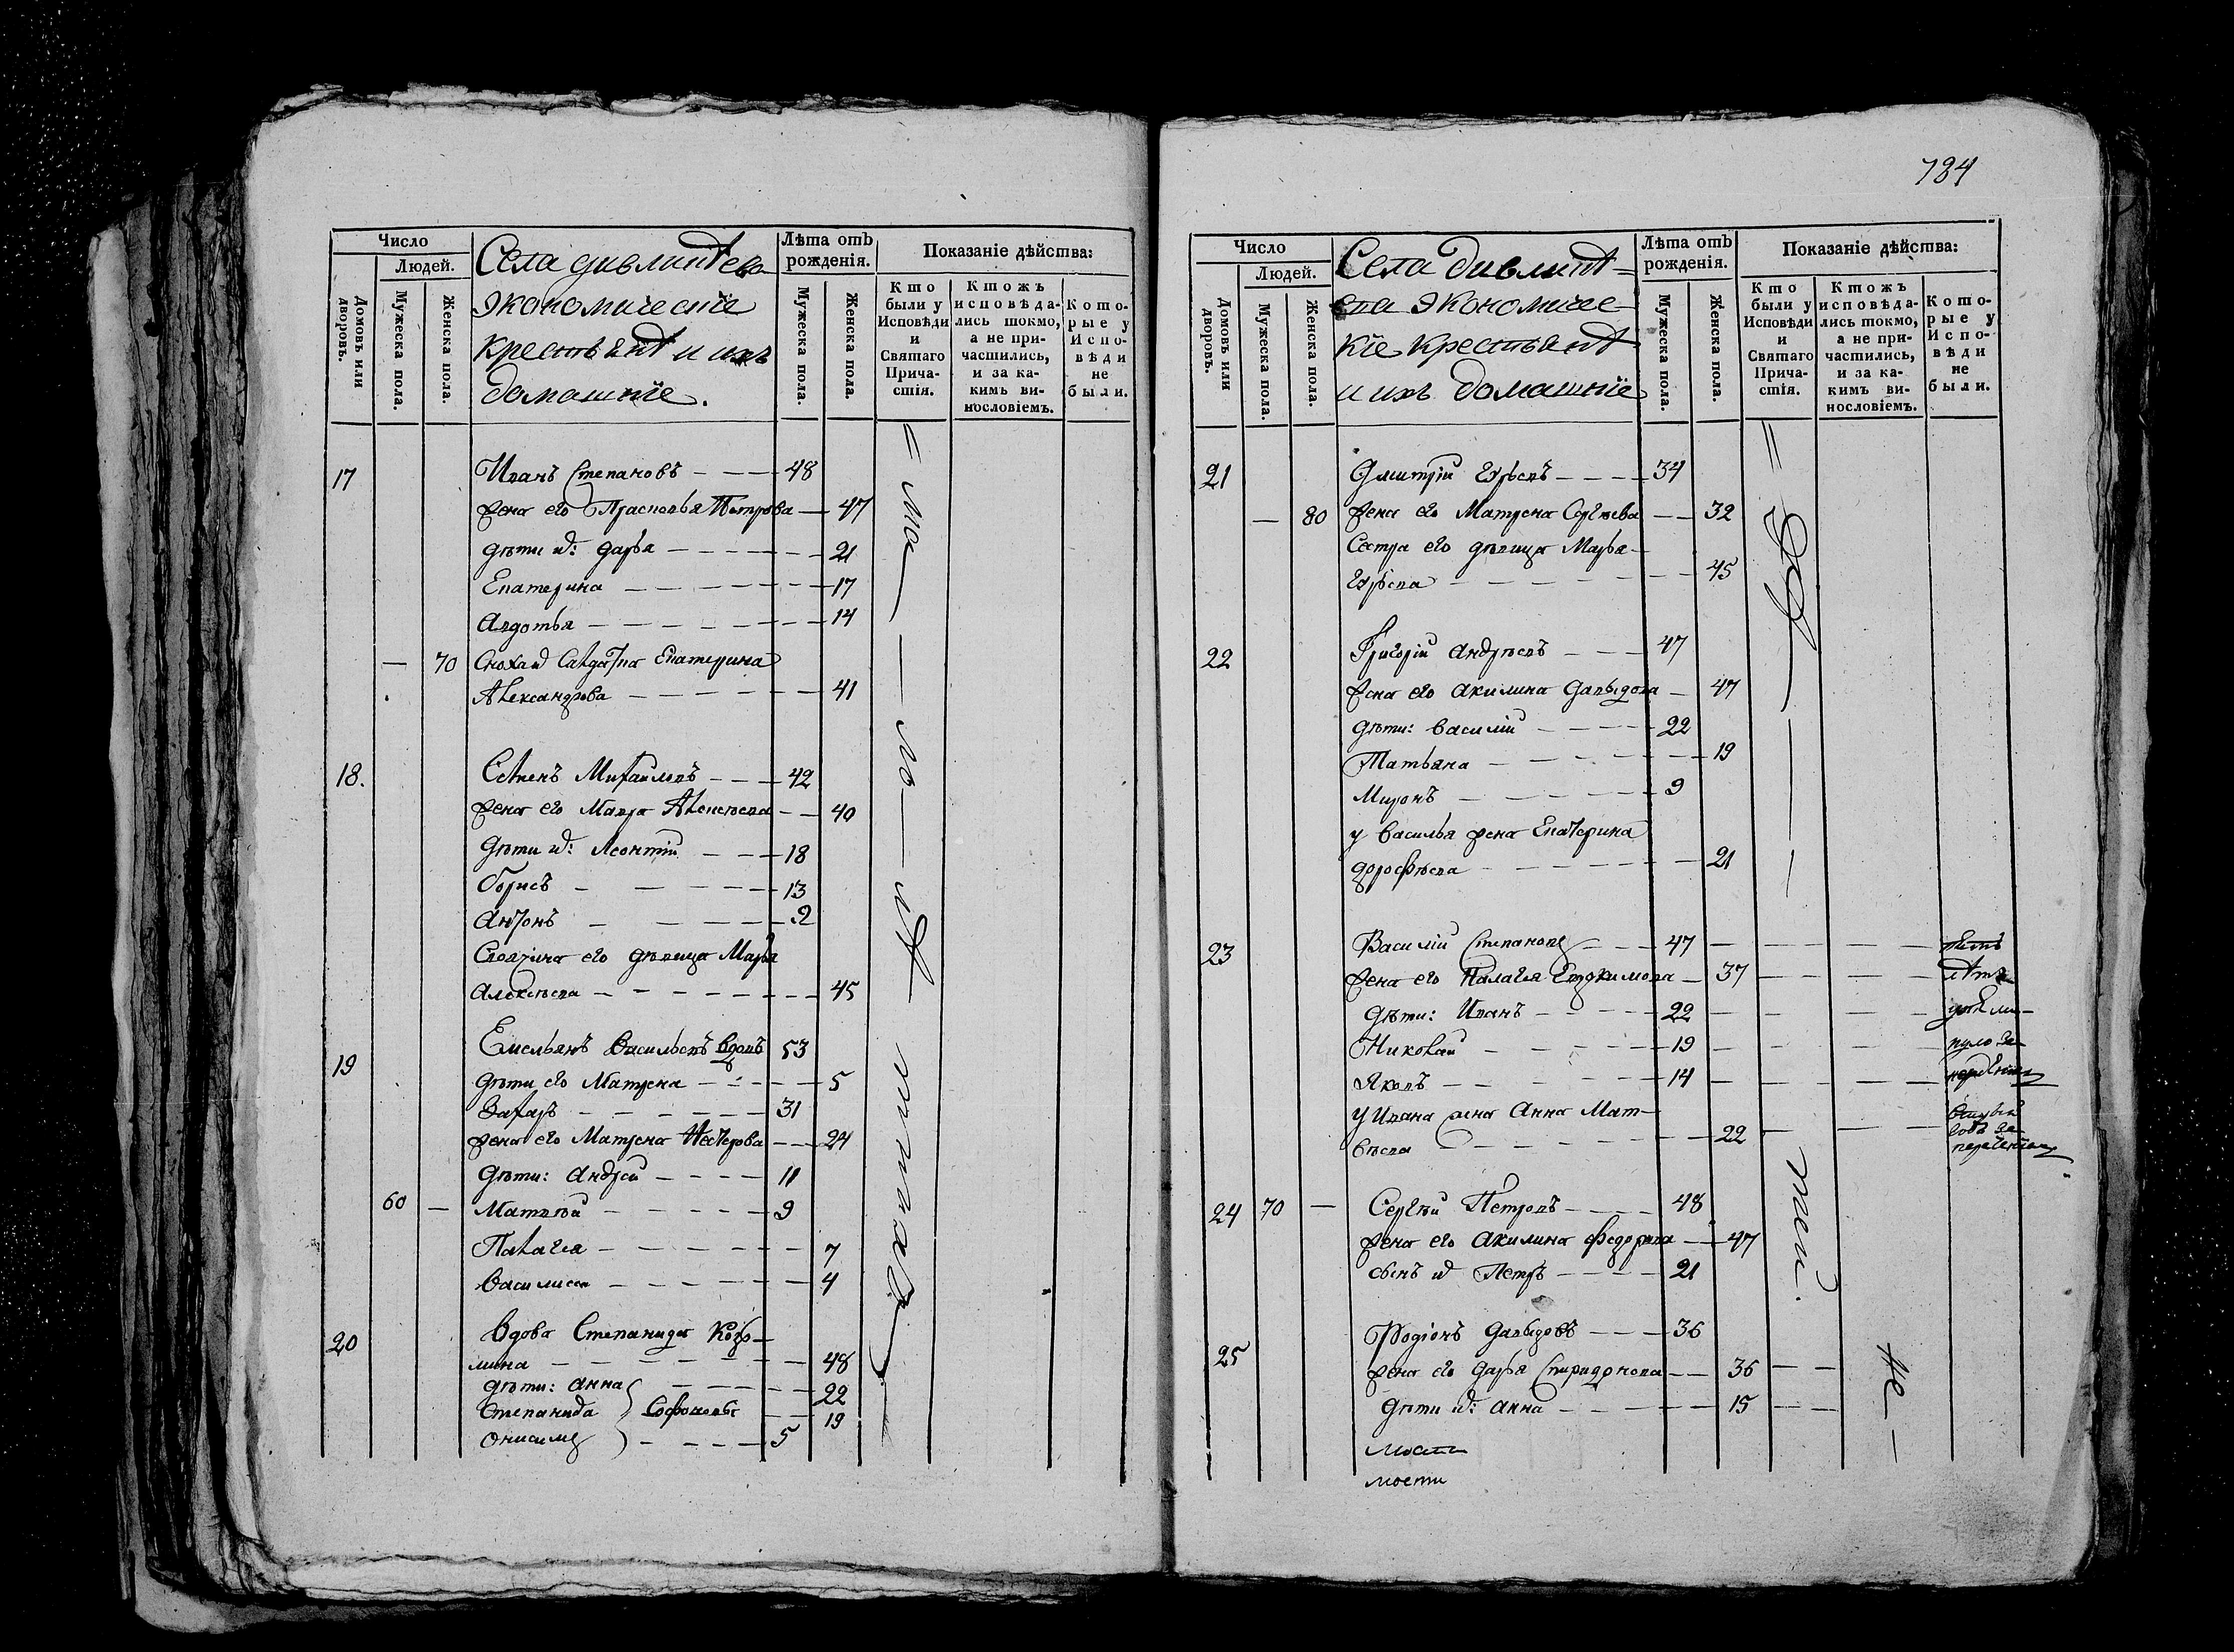 784
Число
Людей.
Домовъ или дворовъ.
Мужеска пола.
Женска пола.
Села
экономическіе
крестьянѣ и ихъ
домашніе.
Лѣта отъ
рожденія.
Мужеска пола.
Женска пола.
Показаніе дѣйства:
Кто
были у
Исповѣди
и
Святаго
Прича-
стія.
Ктожъ
исповѣда-
лись токмо,
а не при-
частились,
и за ка-
кимъ ви-
нословіемъ.
Кото-
рые у
Испо-
вѣди
не
были.
17 Иванъ Степановъ 48
жена его Прасковья Петрова 47
дѣти и: дарья 21
Екатерина 17
Авдотья 14
— 70 Сноха Екатерина
Александрова 41
18. Михайловъ 42
жена его Мавра Алексѣева 40
дѣти и: Леонтій 18
Борисъ 13
Антонъ 2
его дѣвица Марья
Алексѣева 45
19 Емельянъ Васильевъ вдовъ 53
дѣти его Матрена 5
Захаръ 31
жена его Матрена Нестерова 24
дѣти: Андрей 11
60 — Матвѣй 9
Палагея 7
Василиса 4
20 Вдова Степанида
48
дѣти: Анна 22
Степанида 19
Онисимъ 5
Число
Людей.
Домовъ или дворовъ.
Мужеска пола.
Женска пола.
Села
экономичес-
кіе крестьянѣ
и ихъ домашніе
Лѣта отъ
рожденія.
Мужеска пола.
Женска пола.
Показаніе дѣйства:
Кто
были у
Исповѣди
и
Святаго
Прича-
стія.
Ктожъ
исповѣда-
лись токмо,
а не при-
частились,
и за ка-
кимъ ви-
нословіемъ.
Кото-
рые у
Испо-
вѣди
не
были.
21 Дмитрій 34
— 80 жена его Матрена Сергѣева 32
Сестра его дѣвица Марья
45
22 Григорій Андрѣевъ 47
жена его Акилина Давыдова 47
дѣти: Василій 22
Татьяна 19
Миронъ 9
у Василья жена Екатерина
дорофѣева 21
23 Василій Степановъ 47
жена его Палагея Евдокимова 37
дѣти: Иванъ 22
Николай 19
Яковъ 14
У Ивана жена Анна Мат-
вѣева 22
24 70 — Сергѣй Петровъ 48
жена его Акилина Федорова 47
сынъ и Петръ 21
25 Родіонъ Давыдовъ 36
жена его Дарья Спиридонова 36
дѣти и: Анна 15
мости